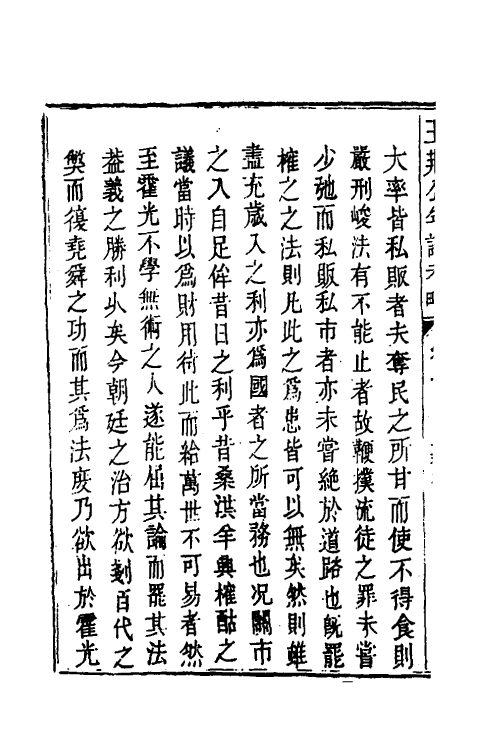 王荊公年譜考略
大率皆私販者夫奪民之所甘而使不得食則
嚴刑峻法有不能止者故鞭撲流徒之罪未嘗
少弛而私販私市者亦未嘗絶於道路也旣罷
榷之之法則凡此之爲患皆可以無矣然則雖
盡充歳入之利亦爲國者之所當務也况關市
之入自足侔昔日之利乎昔桑洪羊興榷酤之
議當時以爲財用待此而給萬世不可易者然
至霍光不學無術之人遂能屈其論而罷其法
葢義之勝利乆矣今朝廷之治方欲剗百代之
獘而復堯舜之功而其爲法度乃欲出於霍光